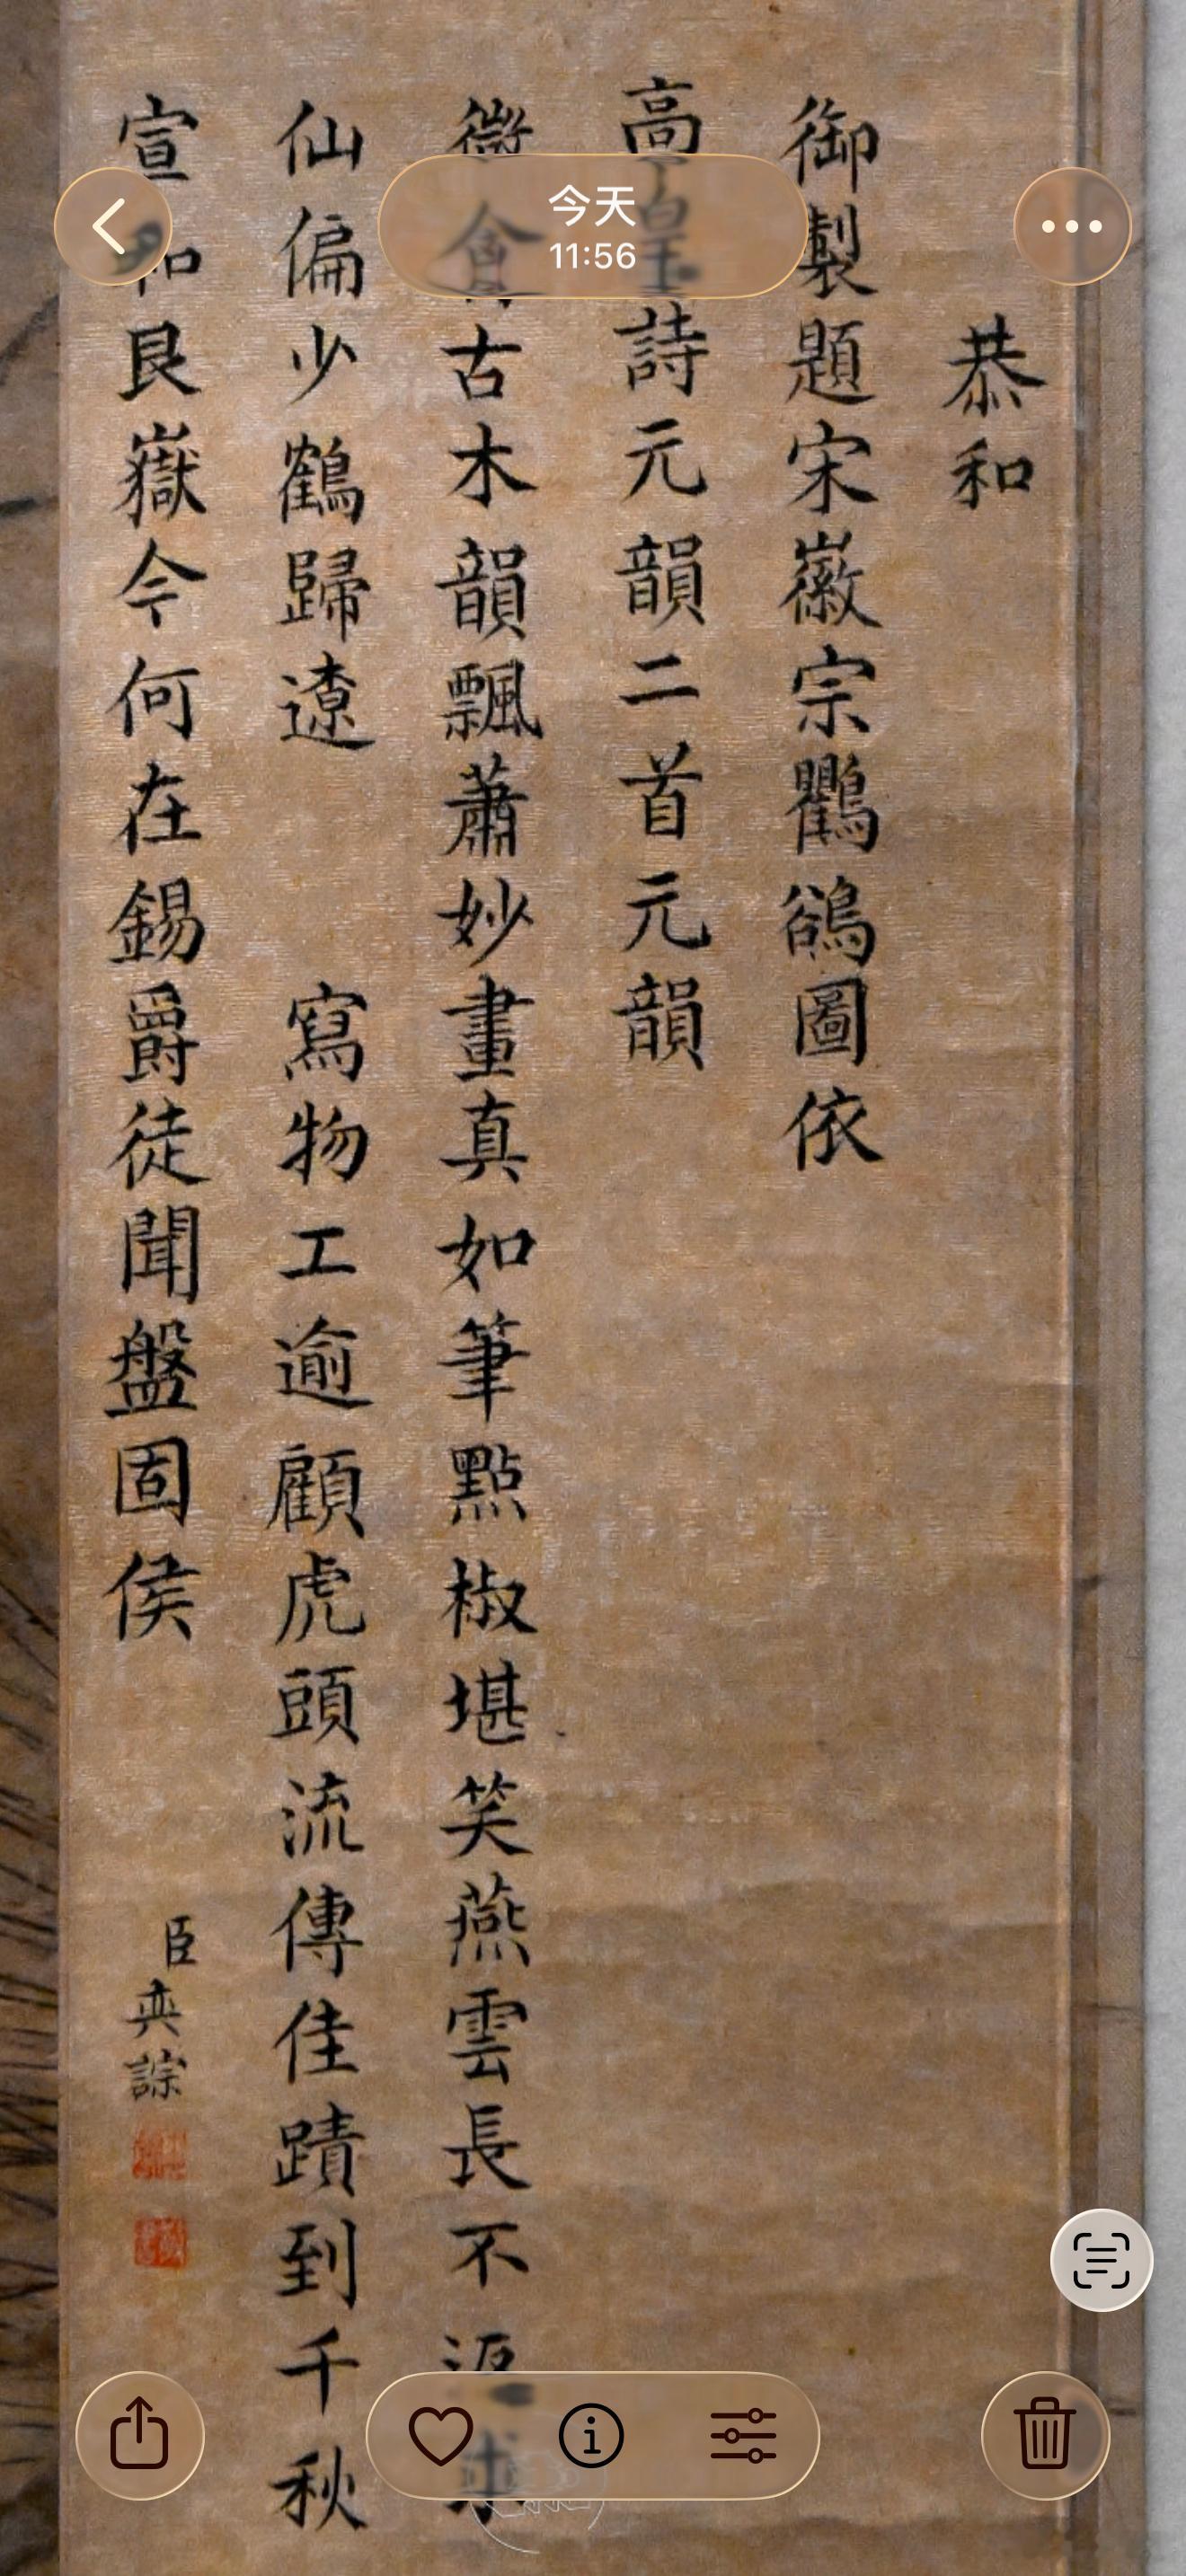 今天
11:56
恭和
御製題宋徽宗鸜鵒圖依
高詩元韻二首元韻
微禽古木韻飄蕭妙畫真如筆點椒堪笑燕雲長不返求
仙偏少鶴歸遼　寫物工逾顧虎頭流傳佳蹟到千秋
宣和艮嶽今何在錫爵徒聞盤固侯
臣奕誴